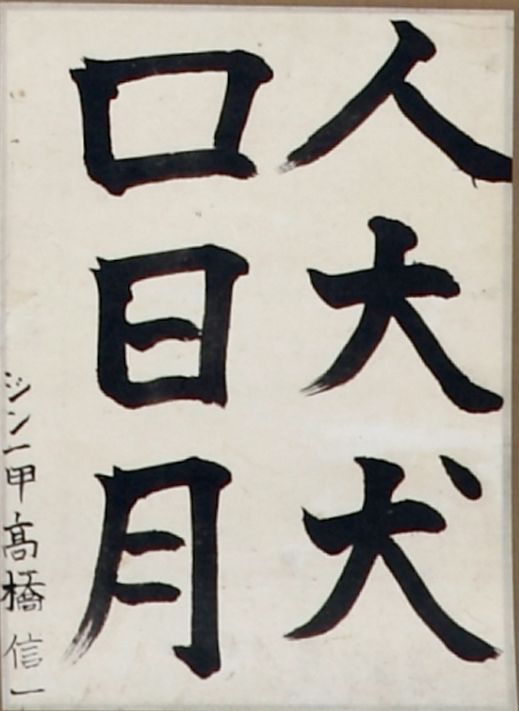 人大犬
口日月
ジン一甲高橋信一